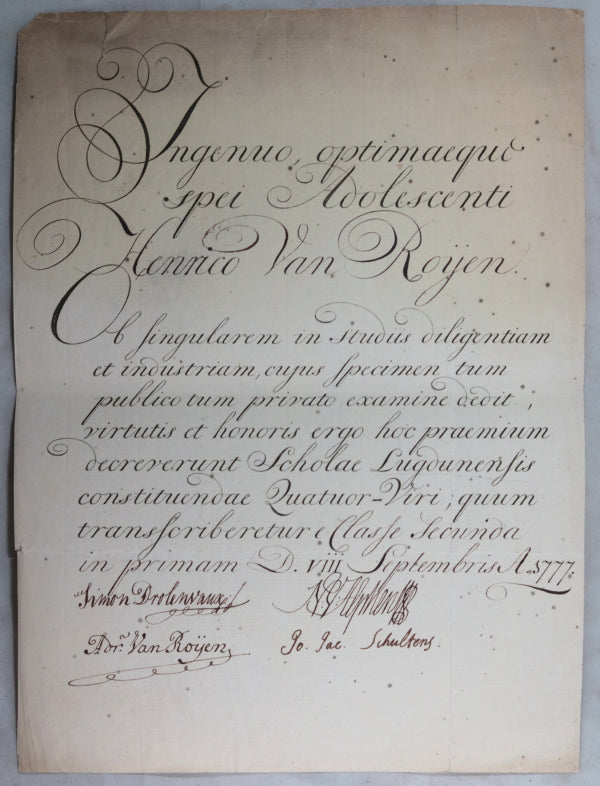 Ingenuo, optimaeque
spei Adolescenti
Henrico Van Roÿen.
Ob singularem in studiis diligentiam
et industriam, cujus specimen tum
publico tum privato examine dedit;
virtutis et honoris ergo hoc praemium
decreverunt Scholae Lugdunensis
constituendae Quatuor-Viri; quum
transscriberetur e Classe Secunda
in primam D. VIII Septembris A. 1777.
Simon Drolenvaux
Adr. Van Roÿen,
Jo. Jac. Schultens.